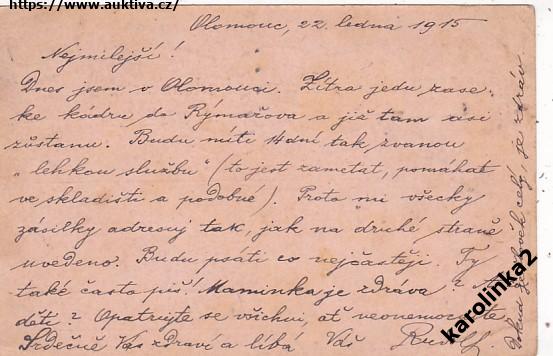 https://www.auktiva.cz/
Olomouc, 22. ledna 1915
Nejmilejší!
Dnes jsem v Olomouci. Zítra jedu zase
ke kádru do Rýmařova a již tam asi
zůstanu. Budu míti 14 dní tak zvanou
„lehkou službu" (to jest zametat, pomáhat
ve skladišti a podobné). Proto mi všecky
zásilky adresuj tak, jak na druhé straně
uvedeno. Budu psáti co nejčastěji. Ty
také často piš. Maminka je zdráva?
děti? Opatrujte se všichni, ať neonemocníte
Srdečně Vás zdraví a líbá Váš Rudolf.
celý, je zdráv.
karolinka2